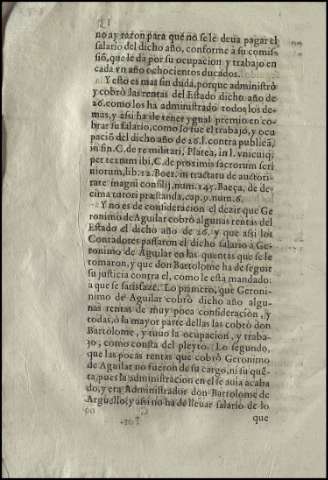 no ay razon para que no se le deua pagar el
salario del dicho año, conforme à su comis-
siõ, que le da por su ocupacion y trabajo en
cada vn año ochocientos ducados.
Y esto es mas sin duda, porque administrò
y cobrò las rentas del Estado dicho año de
26. como los ha administrado todos los de
mas, y assi ha de tener ygual premio en co-
brar su salario, como lo fue el trabajo, y ocu
paciõ del dicho año de 26. l. contra publicã,
in fin. C. de re militari, Platea, in l. vnicuiq;
per textum ibi, C. de proximis sacrorum scri
niorum, lib. 12. Boer. in tractatu de auctori-
tate magni consilij, num. 147. Baeça, de de-
cima tutori præstanda, cap. 9. num. 6.
Y no es de consideracion el dezir que Ge
ronimo de Aguilar cobrò algunas rentas del
Estado el dicho año de 26. y que assi los
Contadores passaron el dicho salario à Ge-
ronimo de Aguilar en las quentas que se le
tomaron, y que don Bartolome ha de seguir
su justicia contra el, como le esta mandado:
a que se satisfaze. Lo primero, que Geroni-
nimo de Aguilar cobrò dicho año algu-
nas rentas de muy poca consideracion, y
todas, ò la mayor parte dellas las cobrò don
Bartolome, y tuuo la ocupacion, y traba-
jo, como consta del pleyto. Lo segundo,
que las pocas rentas que cobrò Geronimo
de Aguilar no fueron de su cargo, ni su quẽ-
ta, pues la administracion en el se auia acaba
do, y era Administrador don Bartolome de
Arguello, y assi no ha de lleuar salario de lo
que